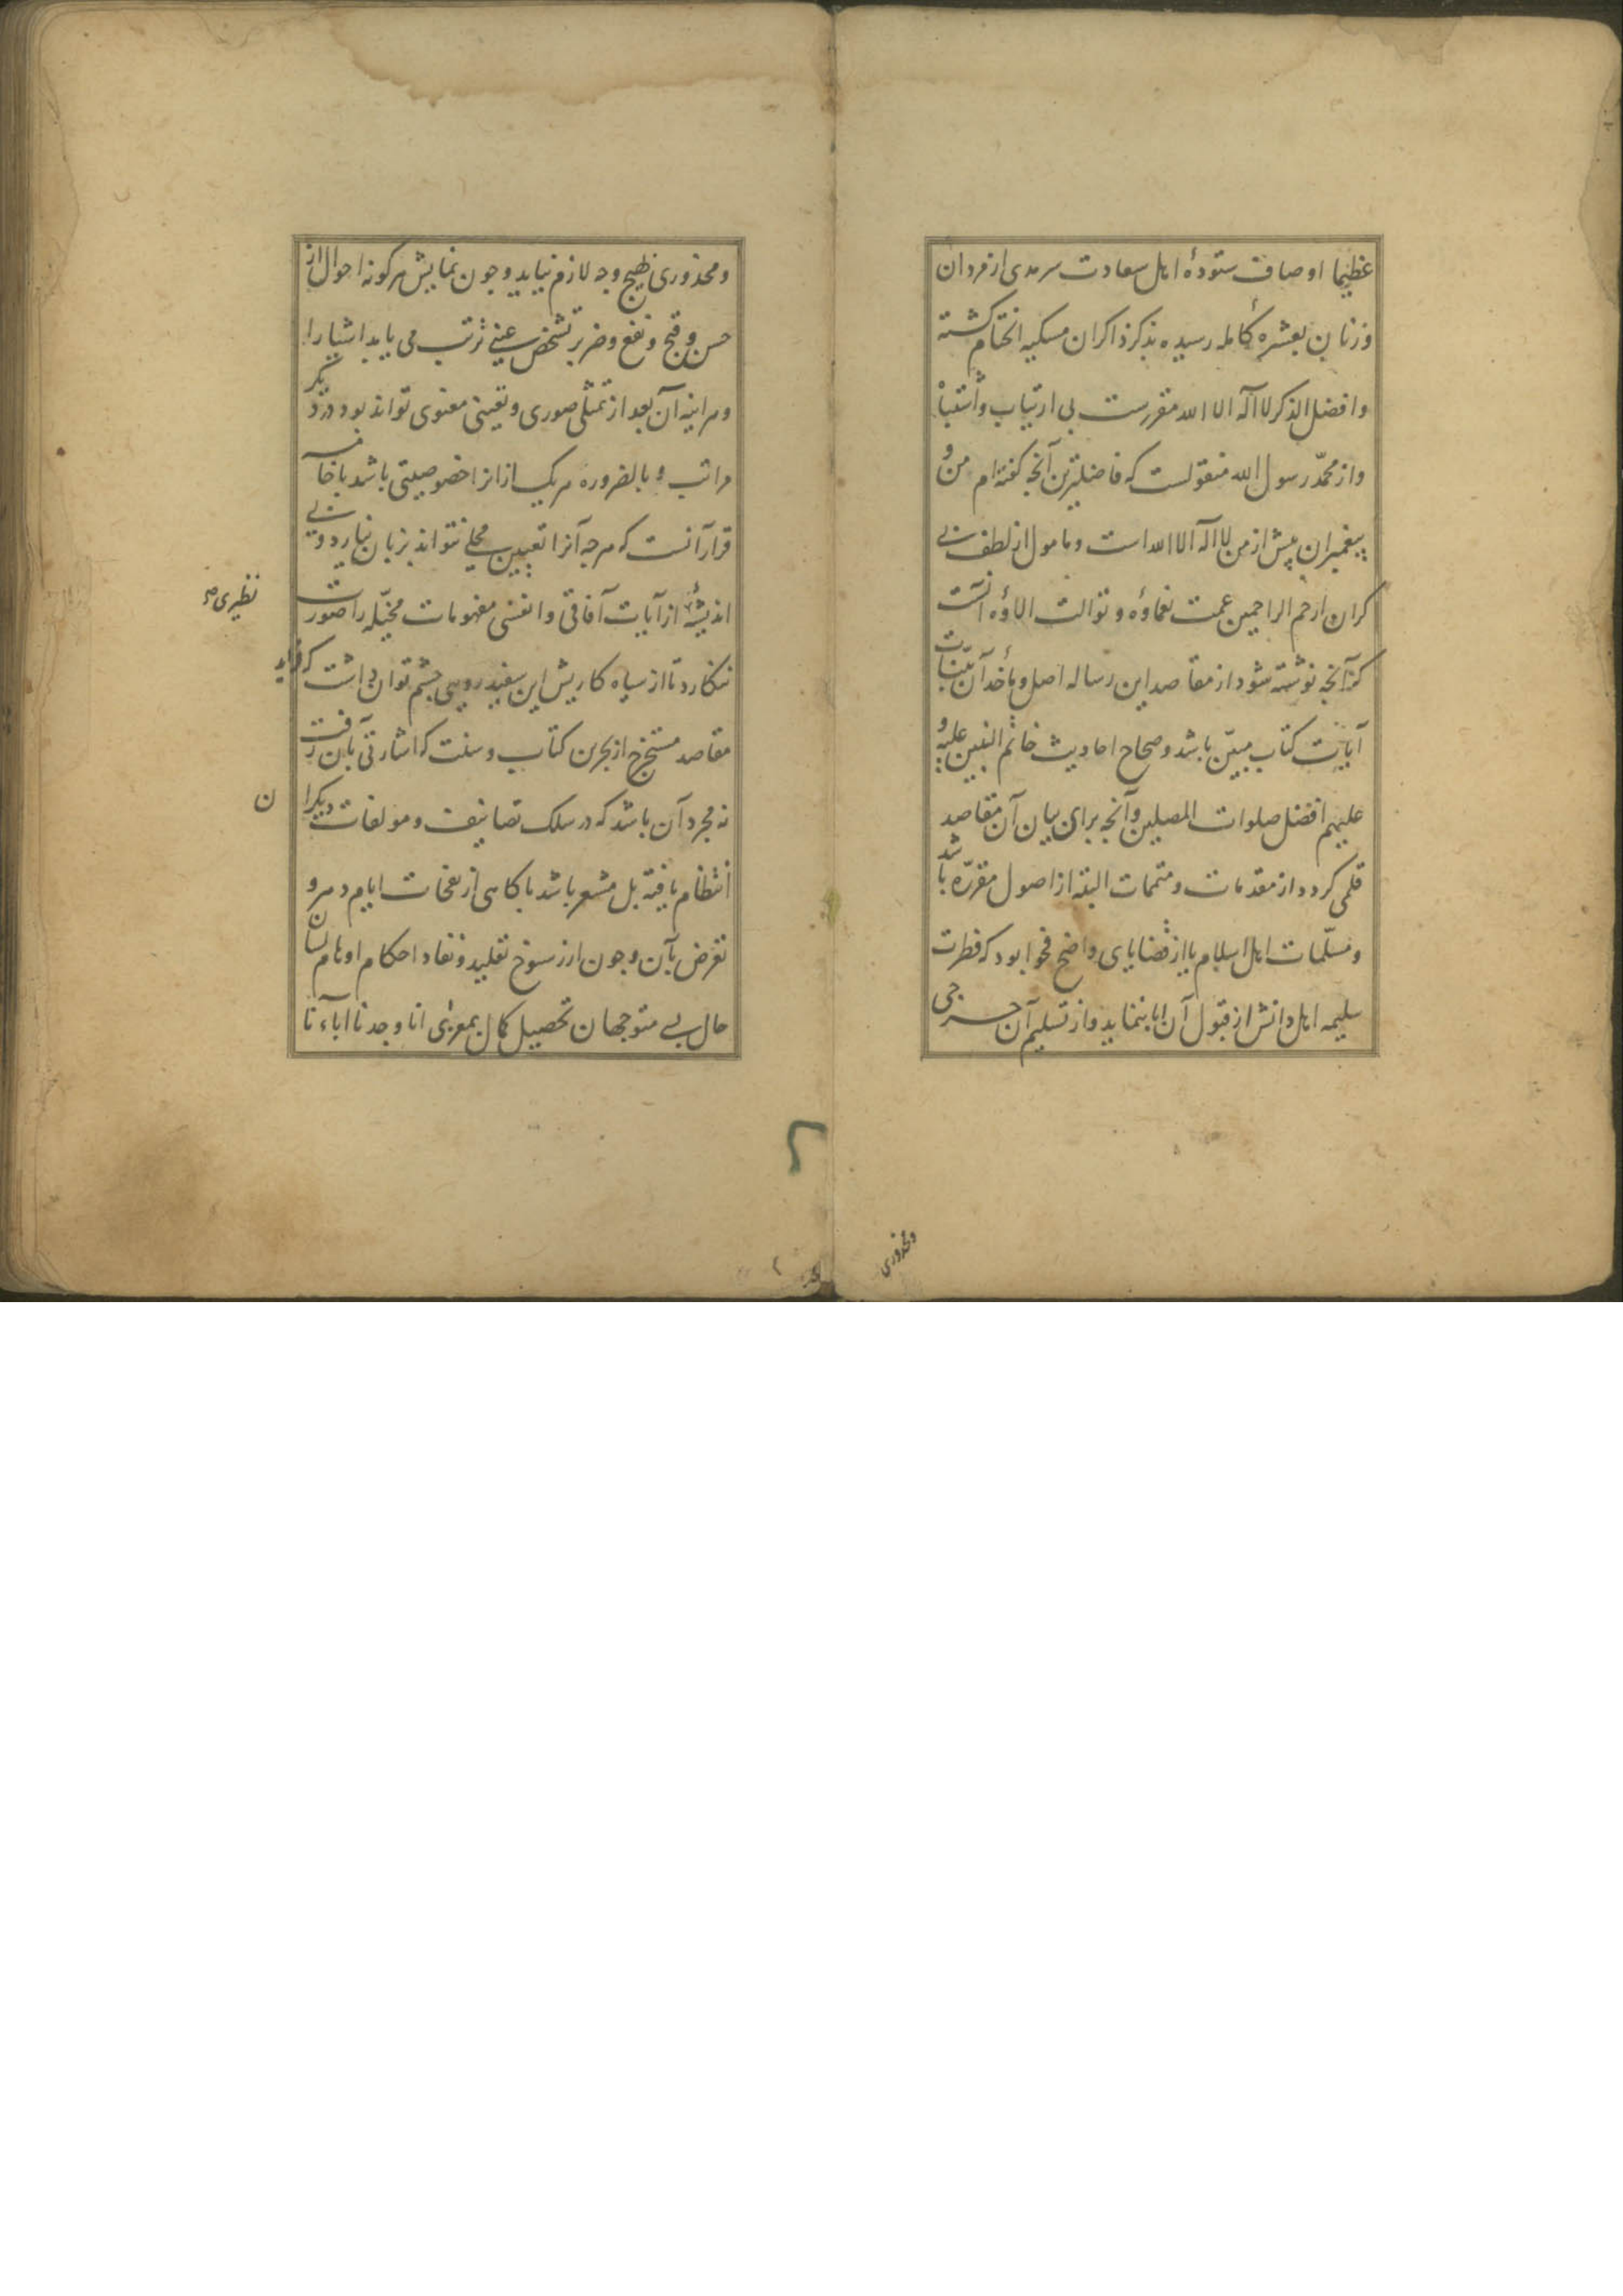 عظیما اوصاف ستودهٔ اهل سعادت سرمدی از مردان
و زنان بعشرهٔ کامله رسیده بذکر ذاکران مسکیه اختتام کشته
و افضل الذکر لا اله الا الله مقررست بی ارتیاب و اشتباه
و از محمّد رسول الله منقولست که فاضلترین آنچه کفته‌ام من و
پیغمبران پیش از من لا اله الا الله است و مامول از لطف بی
کران ارحم الراحمین عمت نعماؤه و توالت الاؤه آنست
کز آنچه نوشته شود از مقاصد این رساله اصل و مأخذ آن بیّنات
آیات کتاب مبیّن باشد و صحاح احادیث خاتم النبیین علیه و
علیهم افضل صلوات المصلین و آنچه برای بیان آن مقاصد
قلمی کردد از مقدمات و متممات البته از اصول مقرّره باشد
و مسلّمات اهل اسلام یا از قضایای واضح فحوا بود که فطرت
سلیمه اهل دانش از قبول آن ابا ننماید و از تسلیم آن حرجی
و محذوری
و محذوری بهیچ وجه لازم نیاید و چون نمایش هرکونه احوال از
حسن و قبح و نفع و ضر بر تشخص عینی ترتب می یابد اشیا را
و هر اینه آن بعد از تمثلی صوری و تعینی معنوی تواند بود در دیکر
مراتب و بالضروره هر یک از انرا خصوصیتی باشد با خا
قرار آنست که هرچه آنرا تعیین محلی نتواند بزبان نیارد و بی
اندیشهٔ از آیات آفاقی و انفسی مفهومات مخیّله را صورت
نظیری صح
ننکارد تا از سیاه کاریش این سفید رویی چشم توان داشت که فواید
مقاصد مستخرج از بحرین کتاب و سنت که اشارتی بآن رفت
نه مجرد آن باشد که در سلک تصانیف و مولفات دیکران
انتظام یافته بل مشعر باشد باکاهی از نفحات ایام دهر و
تعرض بآن و چون از رسوخ تقلید و نفاد احکام اوهام لسان
حال بی متوجهان تحصیل کمال بمعزی انا وجدنا اباءنا